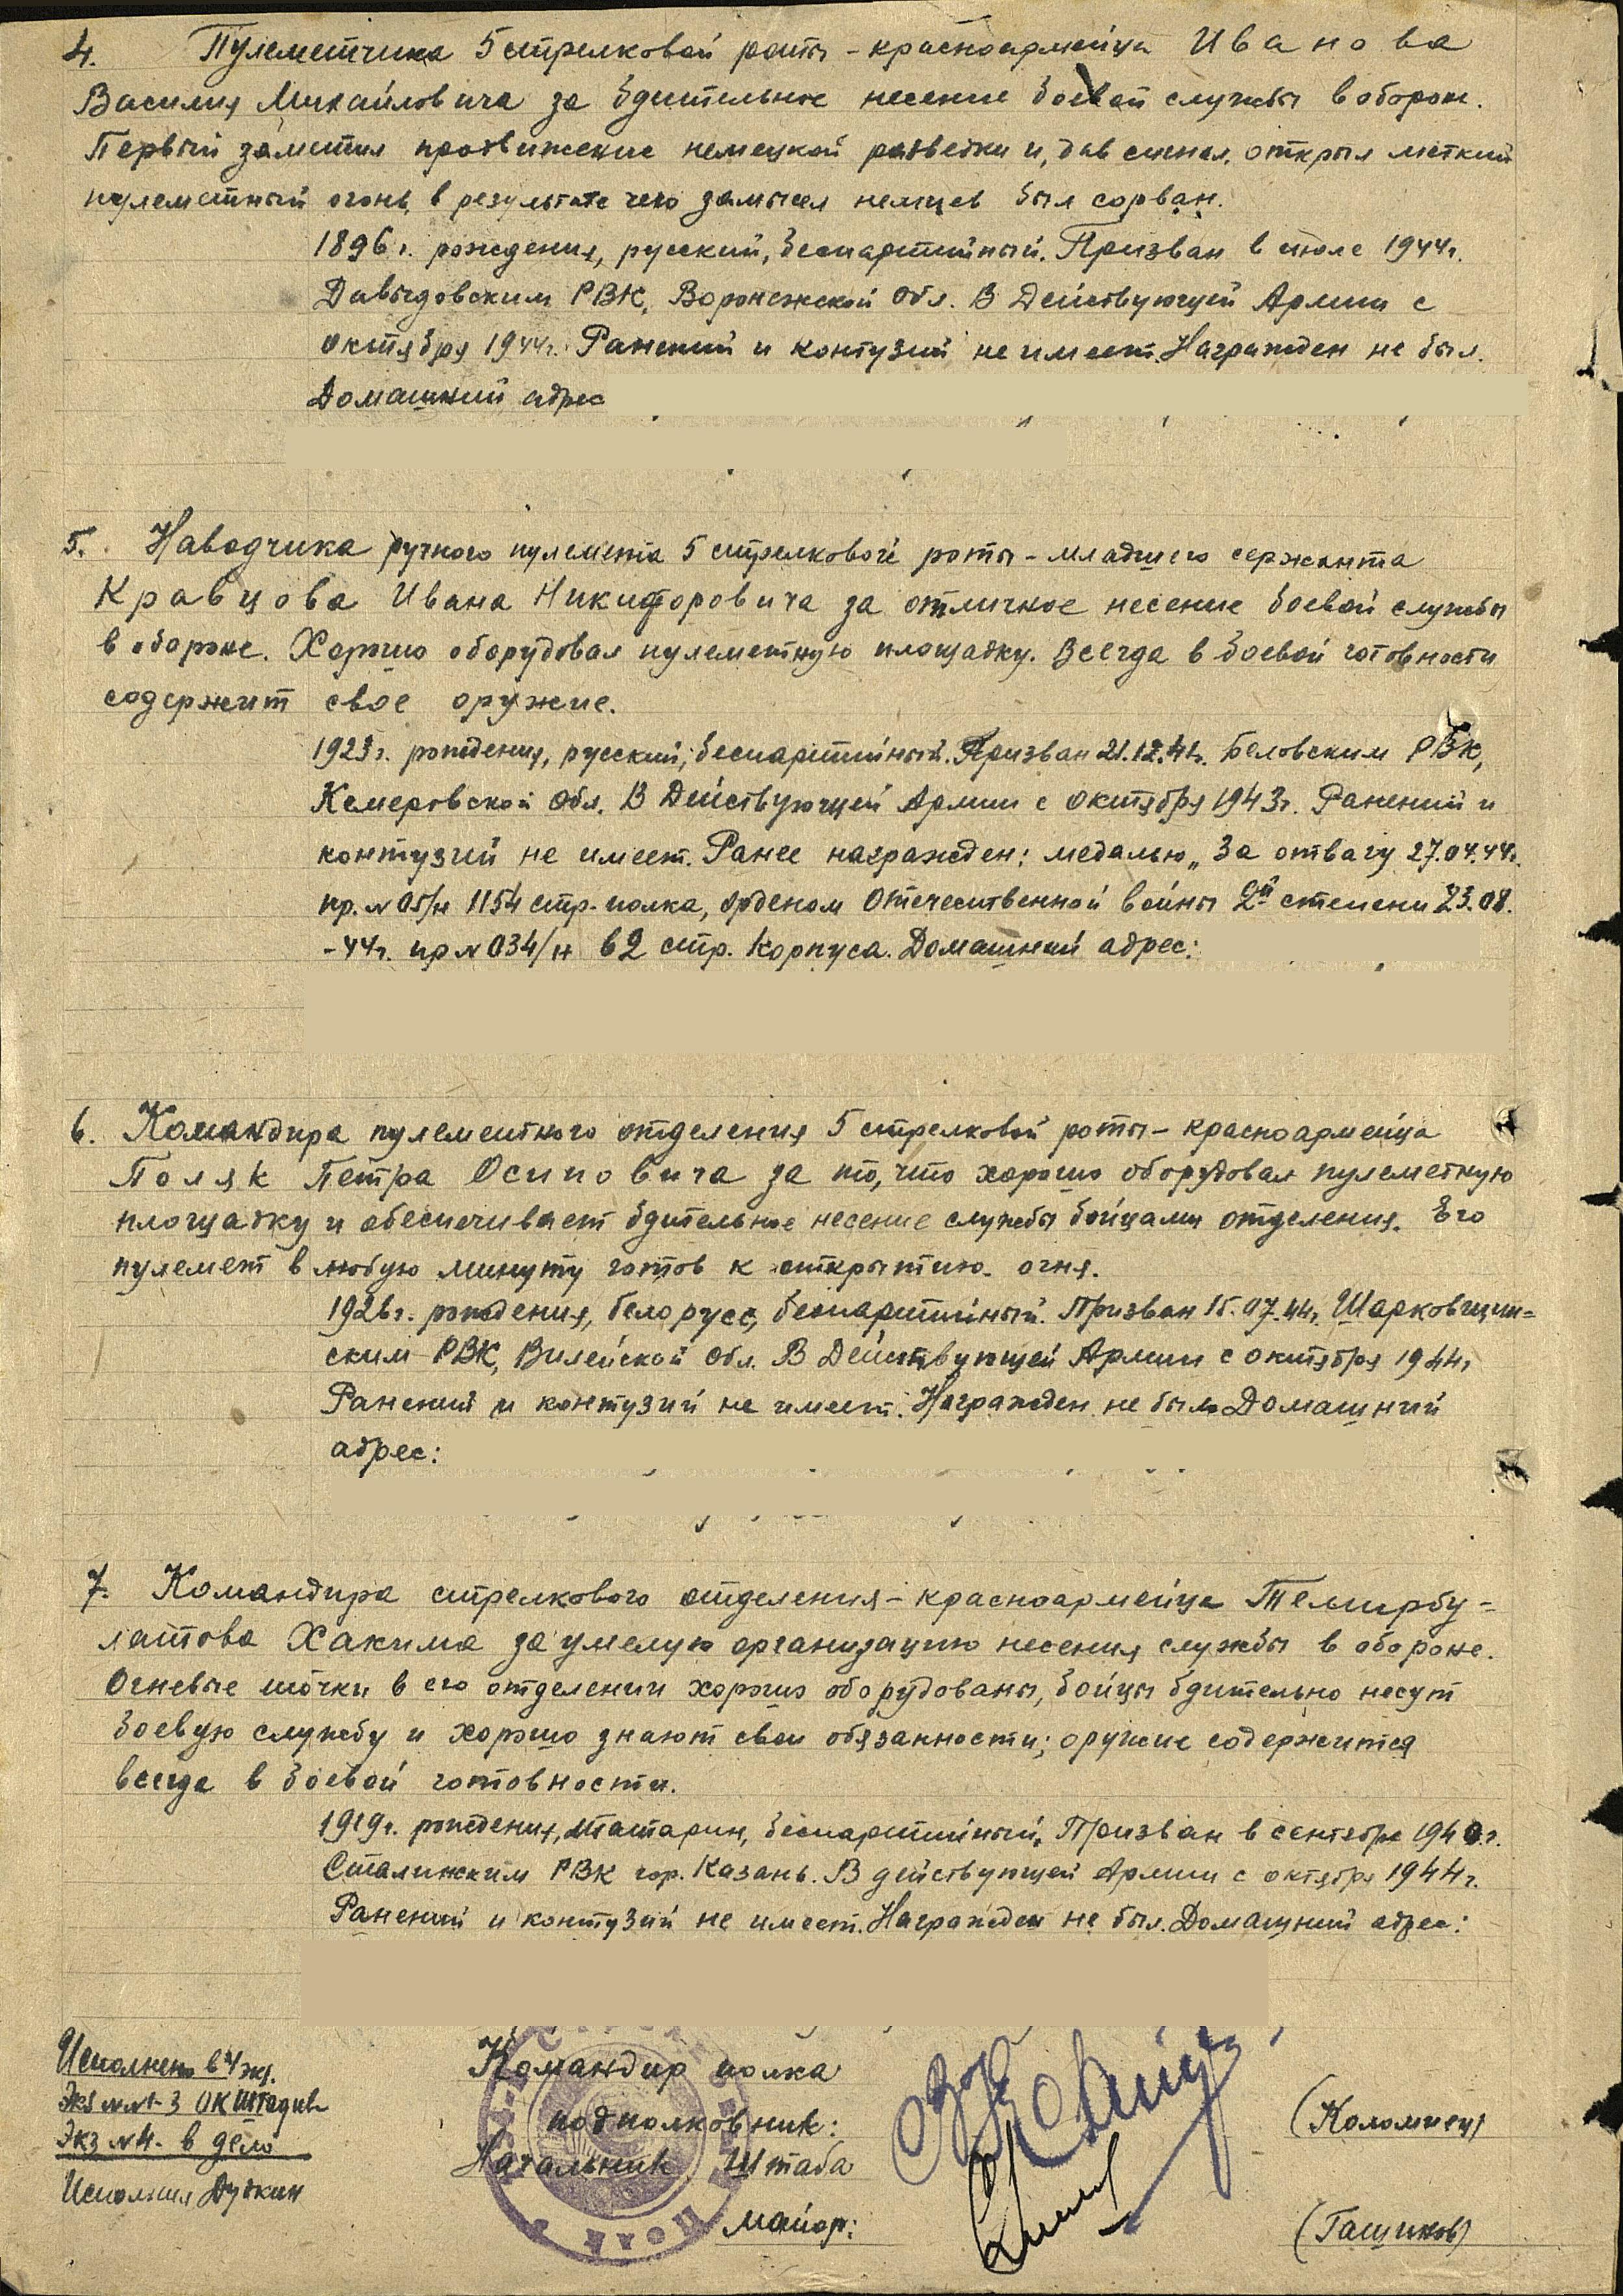 4. Пулеметчика 5 стрелковой роты - красноармейца Иванова
Василия Михайловича за бдительное несение боевой службы в обороне.
Первый заметил продвижение немецкой разведки и, дав сигнал, открыл меткий
пулеметный огонь, в результате чего замысел немцев был сорван.
1896 г. рождения, русский, беспартийный. Призван в июле 1944 г.
Давыдовским РВК, Воронежской обл. В Действующей Армии с
октября 1944 г. Ранений и контузий не имеет. Награжден не был.
Домашний адрес
5. Наводчика ручного пулемета 5 стрелковой роты - младшего сержанта
Кравцова Ивана Никифоровича за отличное несение боевой службы
в обороне. Хорошо оборудовал пулеметную площадку. Всегда в боевой готовности
содержит свое оружие.
1923 г. рождения, русский, беспартийный. Призван 21.12.41г. Беловским РВК,
Кемеровской обл. В Действующей Армии с октября 1943 г. Ранений и
контузий не имеет. Ранее награжден: медалью „За отвагу 27.04.44г.
пр. № 05/н 1154 стр. полка, орденом Отечественной войны 2й степени 23.08.
-44г. пр № 034/н 62 стр. Корпуса. Домашний адрес:
6. Командира пулеметного отделения 5 стрелковой роты - красноармейца
Поляк Петра Осиповича за то, что хорошо оборудовал пулеметную
площадку и обеспечивает бдительное несение службы бойцами отделения. Его
пулемет в любую минуту готов к открытию огня.
1926 г. рождения, белорусс, беспартийный. Призван 15.07.44г. Шарковщин=
ским РВК, Вилейской обл. В Действующей Армии с октября 1944г
Ранений и контузий не имеет. Награжден не был. Домашний
адрес:
7. Командира стрелкового отделения - красноармейца Темирбу=
латова Хакима за умелую организацию несения службы в обороне.
Огневые точки в его отделении хорошо оборудованы, бойцы бдительно несут
боевую службу и хорошо знают свои обязанности; оружие содержится
всегда в боевой готовности.
1919 г. рождения, татарин, беспартийный, Призван в сентябре 1940 г.
Сталинским РВК гор. Казань. В действующей Армии с октября 1944 г.
Ранений и контузий не имеет. Награжден не был. Домашний адрес:
Исполнено в 4 экз.
Экз №№ 1-3 ОК Штадив
Экз № 4 - в дело
Исполнил Дудкин
Командир полка
подполковник:
(Коломиец)
Начальник Штаба
майор:
(Гащиков)